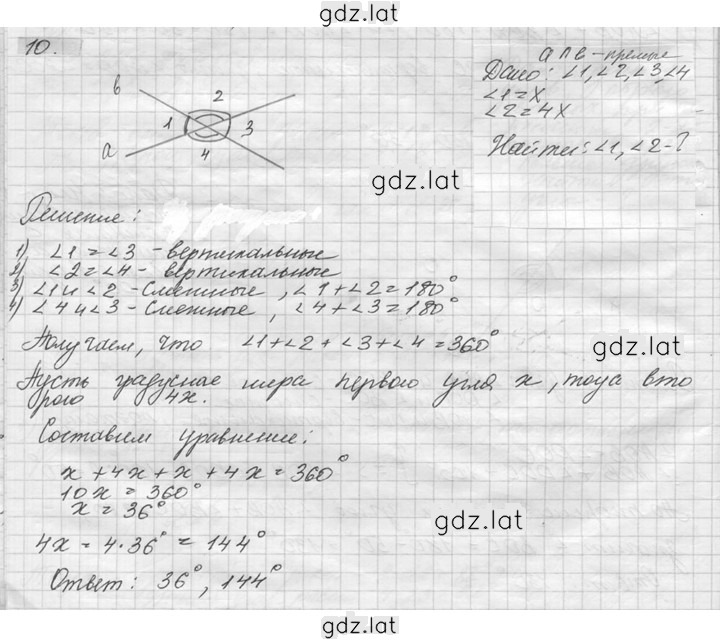 gdz.lat
10.
a ∩ b - прямые
Дано: ∠1, ∠2, ∠3, ∠4
∠1 = x
∠2 = 4x
Найти: ∠1, ∠2 - ?
b
2
1
3
a
4
gdz.lat
Решение:
1) ∠1 = ∠3 - вертикальные
2) ∠2 = ∠4 - вертикальные
3) ∠1 и ∠2 - смежные, ∠1 + ∠2 = 180°
4) ∠4 и ∠3 - смежные, ∠4 + ∠3 = 180°
Получаем, что ∠1 + ∠2 + ∠3 + ∠4 = 360°
gdz.lat
Пусть градусная мера первого угла x, тогда вто
рого 4x.
Составим уравнение:
x + 4x + x + 4x = 360°
10x = 360°
x = 36°
gdz.lat
4x = 4·36° = 144°
Ответ: 36°, 144°
gdz.lat